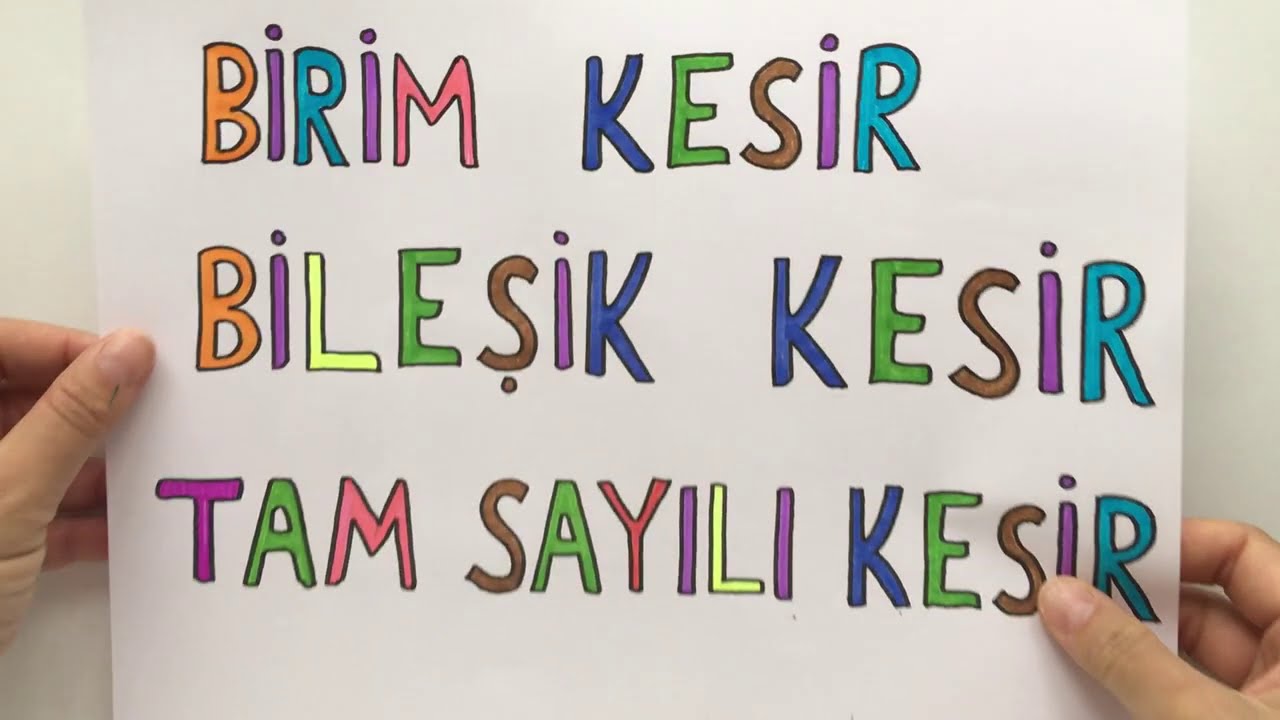 BİRİM KESİR
BİLEŞİK KESİR
TAM SAYILI KESİR